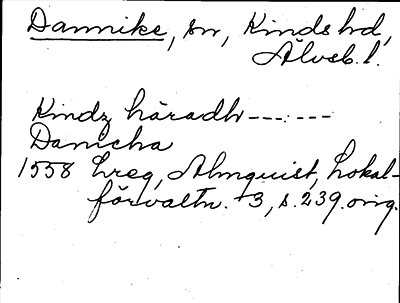 Dannike, sn, Kinds hd,
Älvsb. l.
Kindz häradh -------
Danicha
1558 Lreg, Almquist, Lokal-
förvaltn. 3, s. 239. orig.